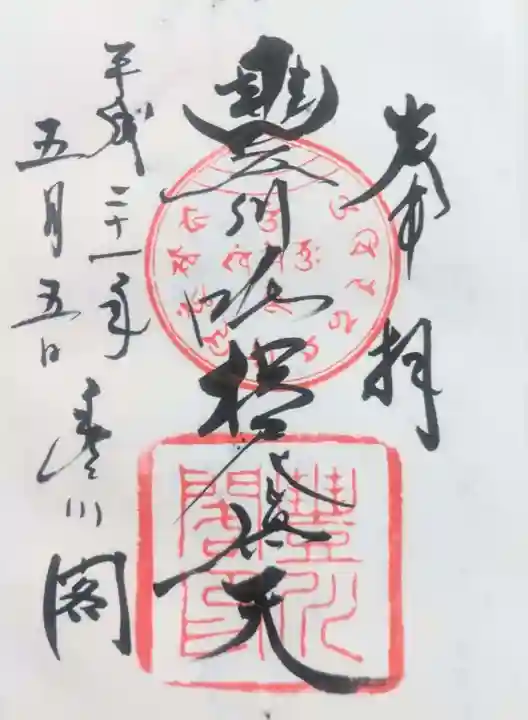 奉拝
豐川吒枳尼眞天
豐川閣印
平成二十一年
五月五日
豊川閣